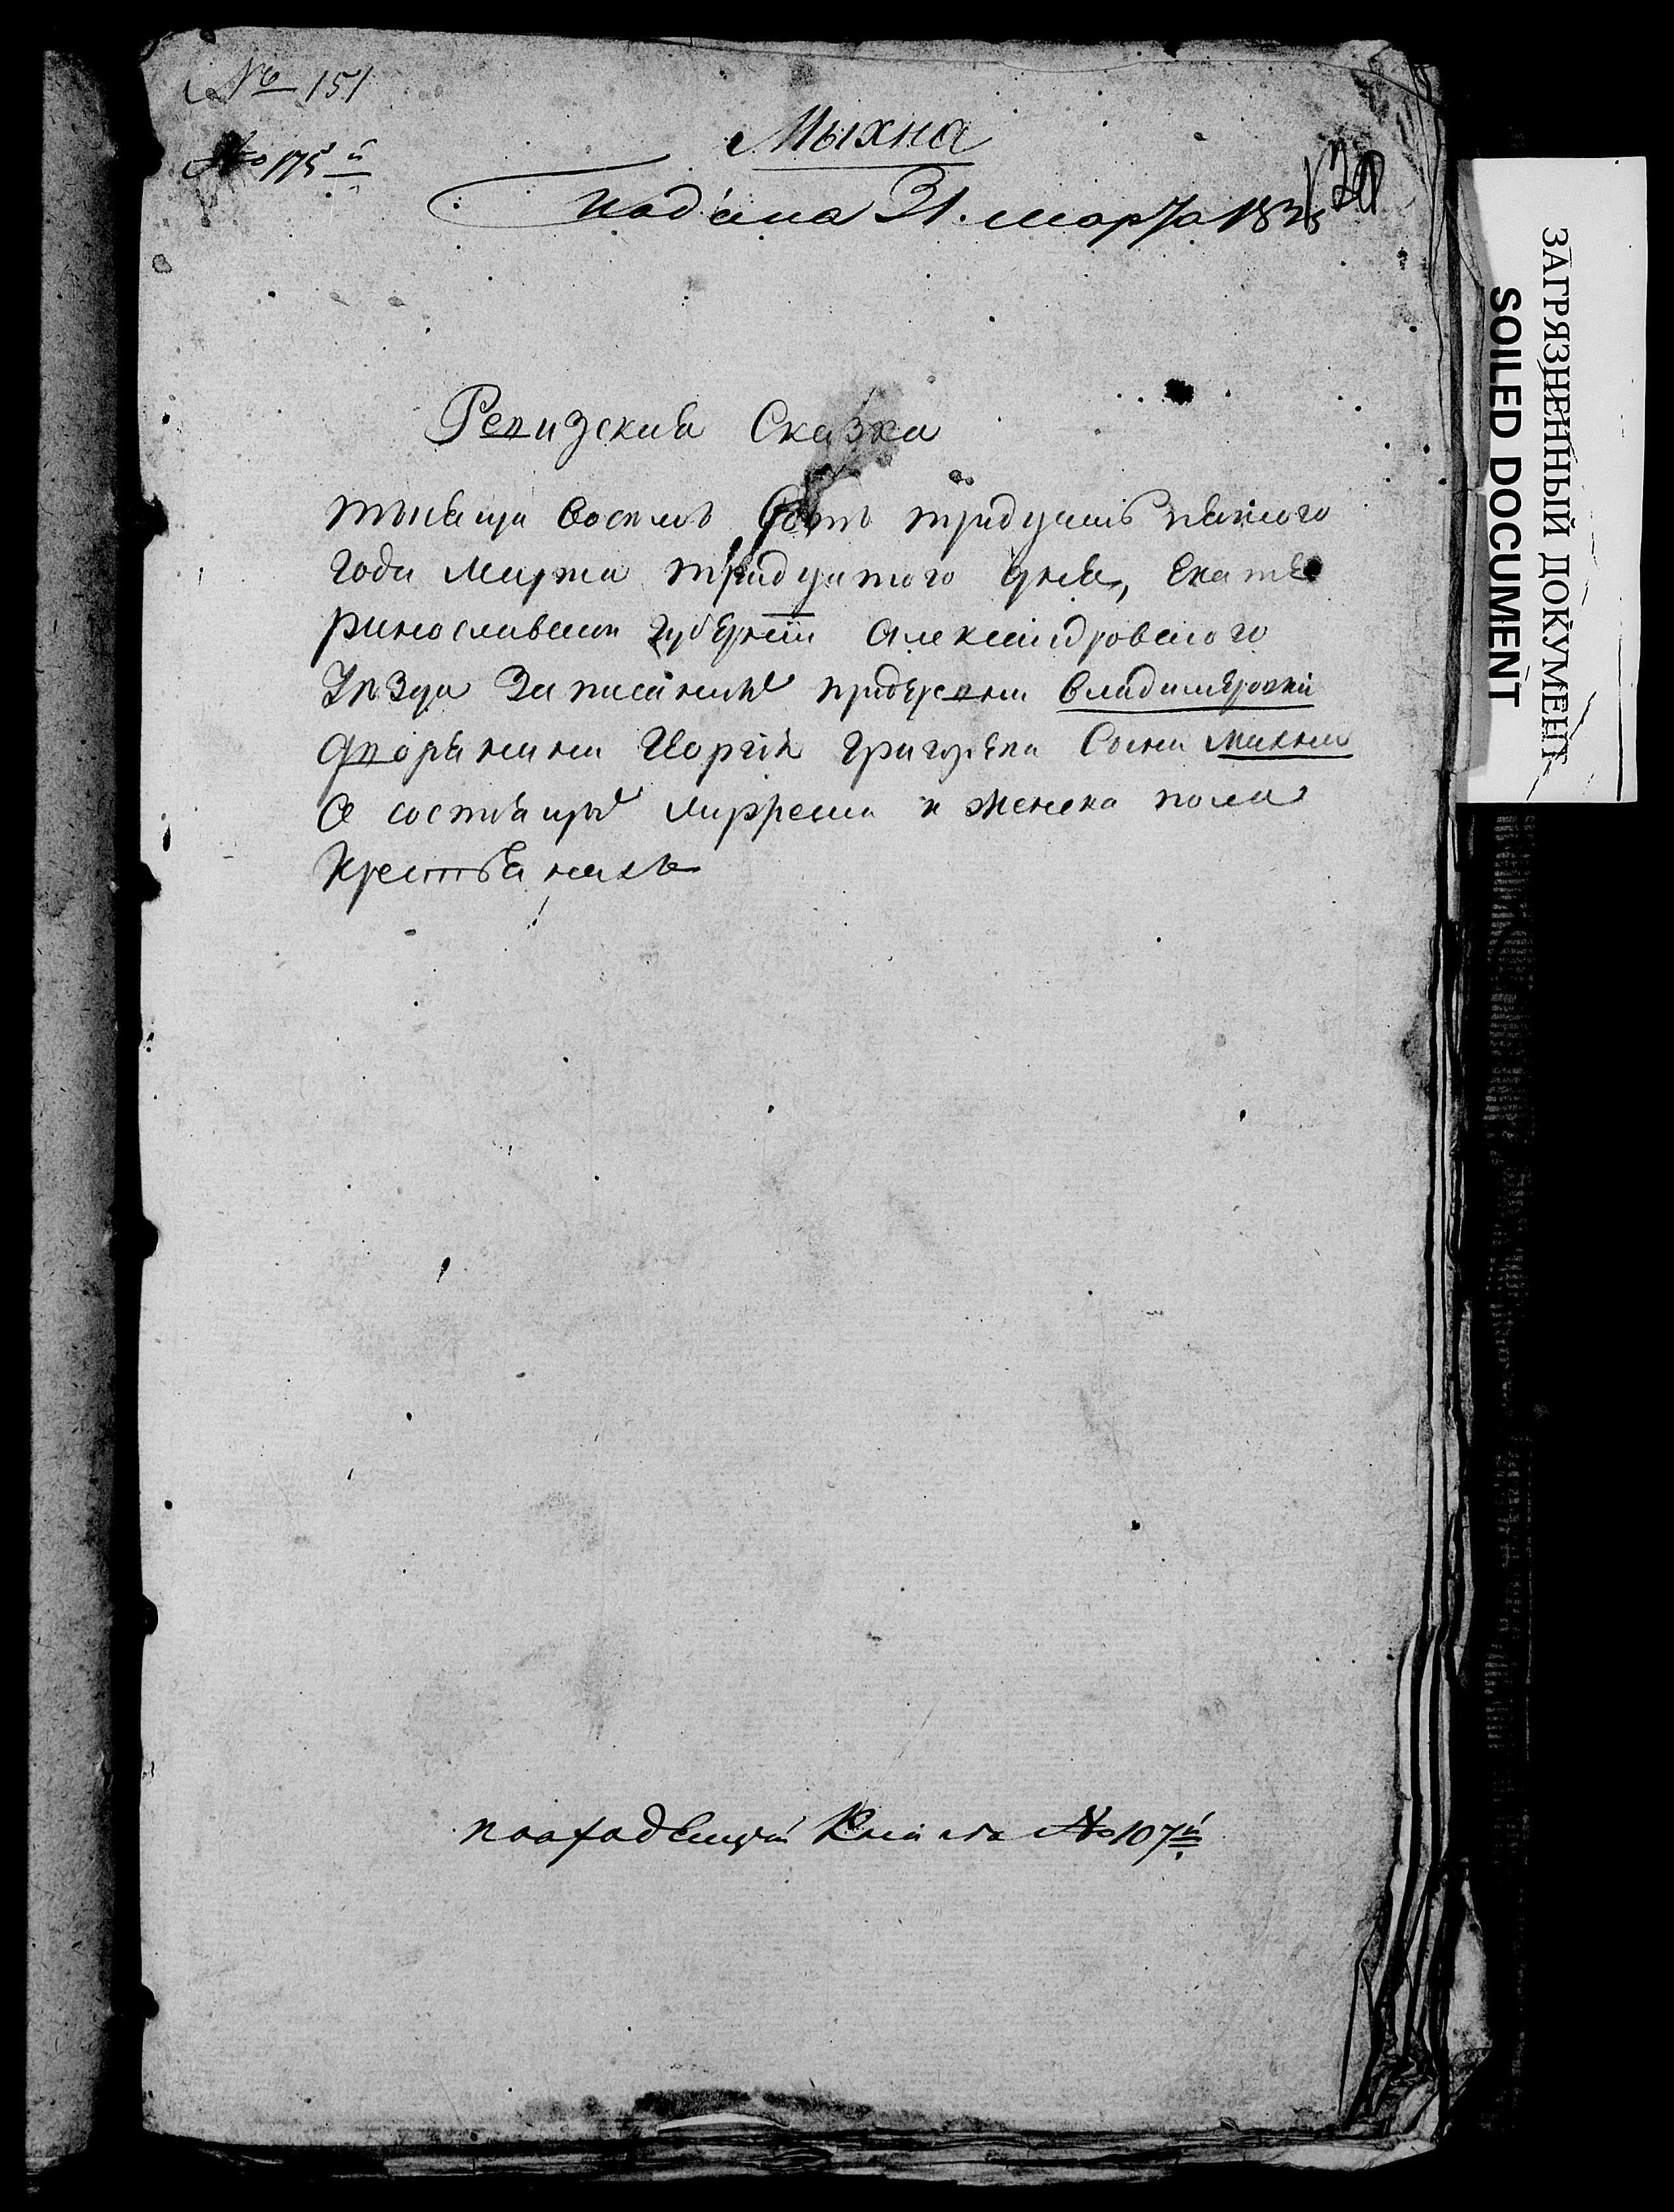 № 151
№ 175й
Мыхна
подана 31. марта 1835
Ревизская Сказка
тысяща восемъ сотъ тридцать пятого
года Марта тридцатого дня, Екате
ринославской губернии Александровского
уезда записаной придеревни Владимеровки
дворянина Георгия Григорьева Сына Михна
О состоящих мужеска и женска пола
крестьянахъ
повходящей Книге №107й
ЗАГРЯЗНЕННЫЙ ДОКУМЕНТ
SOILED DOCUMENT